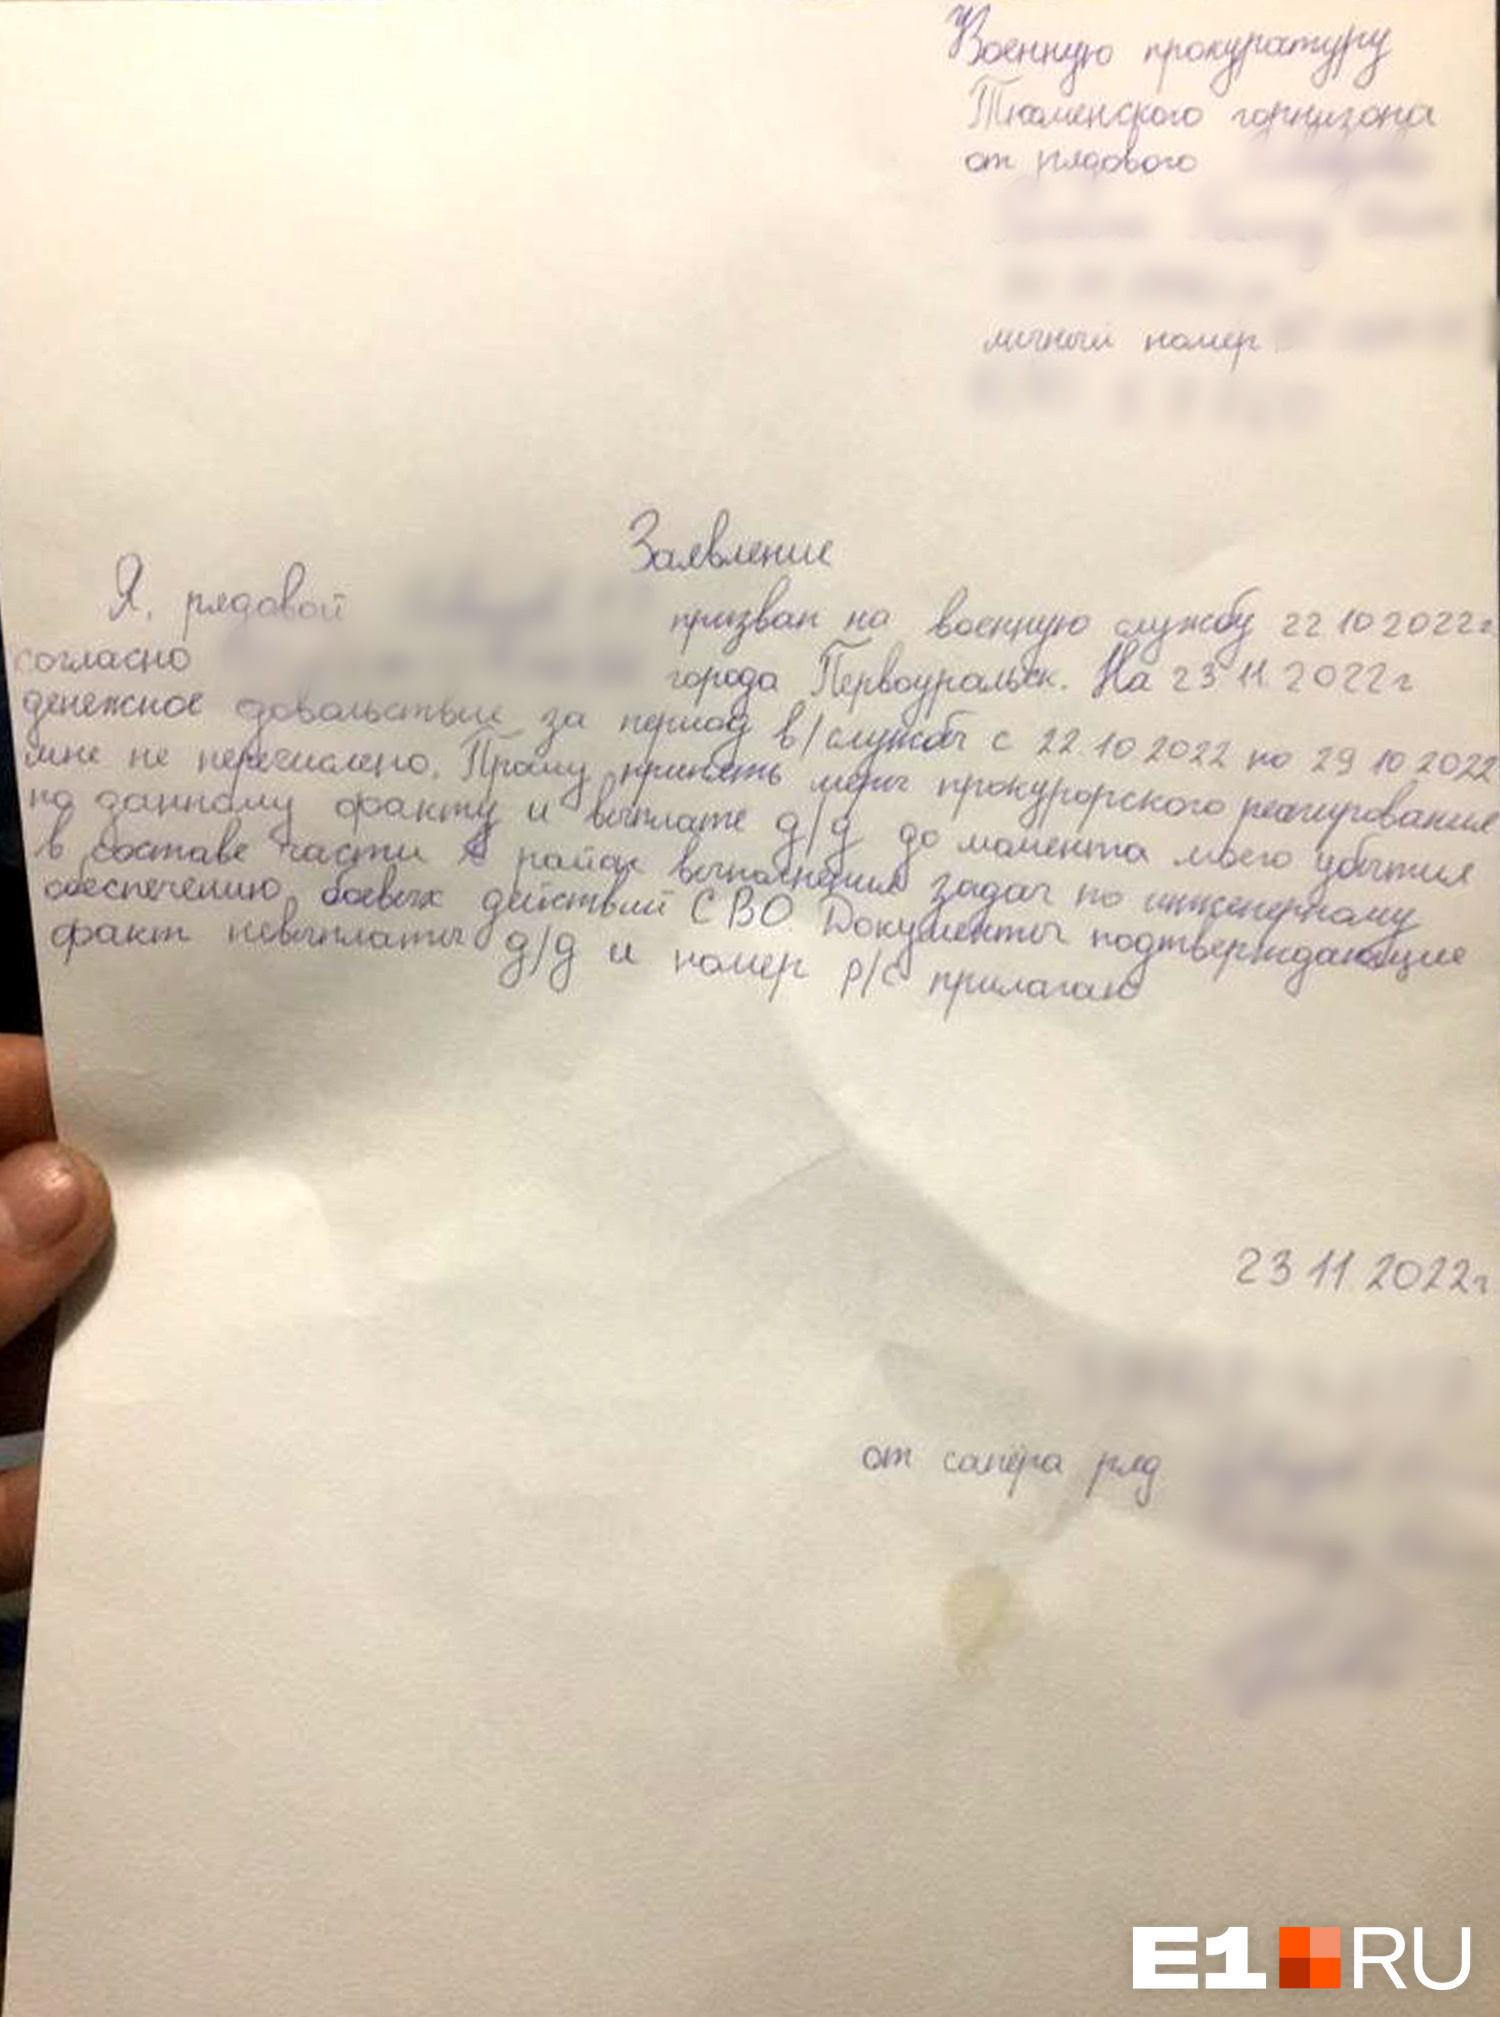 Военную прокуратуру
Тюменского горнизона
от рядового
личный номер
Заявление
Я, рядовой призван на военную службу 22 10 2022г
согласно города Первоуральск. На 23 11 2022г
денежное довольствие за период в/службы с 22.10 2022 по 29 10 2022
мне не перечислено. Прошу принять меры прокурорского реагирования
по данному факту и выплате д/д до момента моего убытия
в составе части в район выполнения задач по инженерному
обеспечению боевых действий СВО. Документы подтверждающие
факт невыплаты д/д и номер р/с прилагаю
23 11 2022г
от сапёра ряд
E1 RU